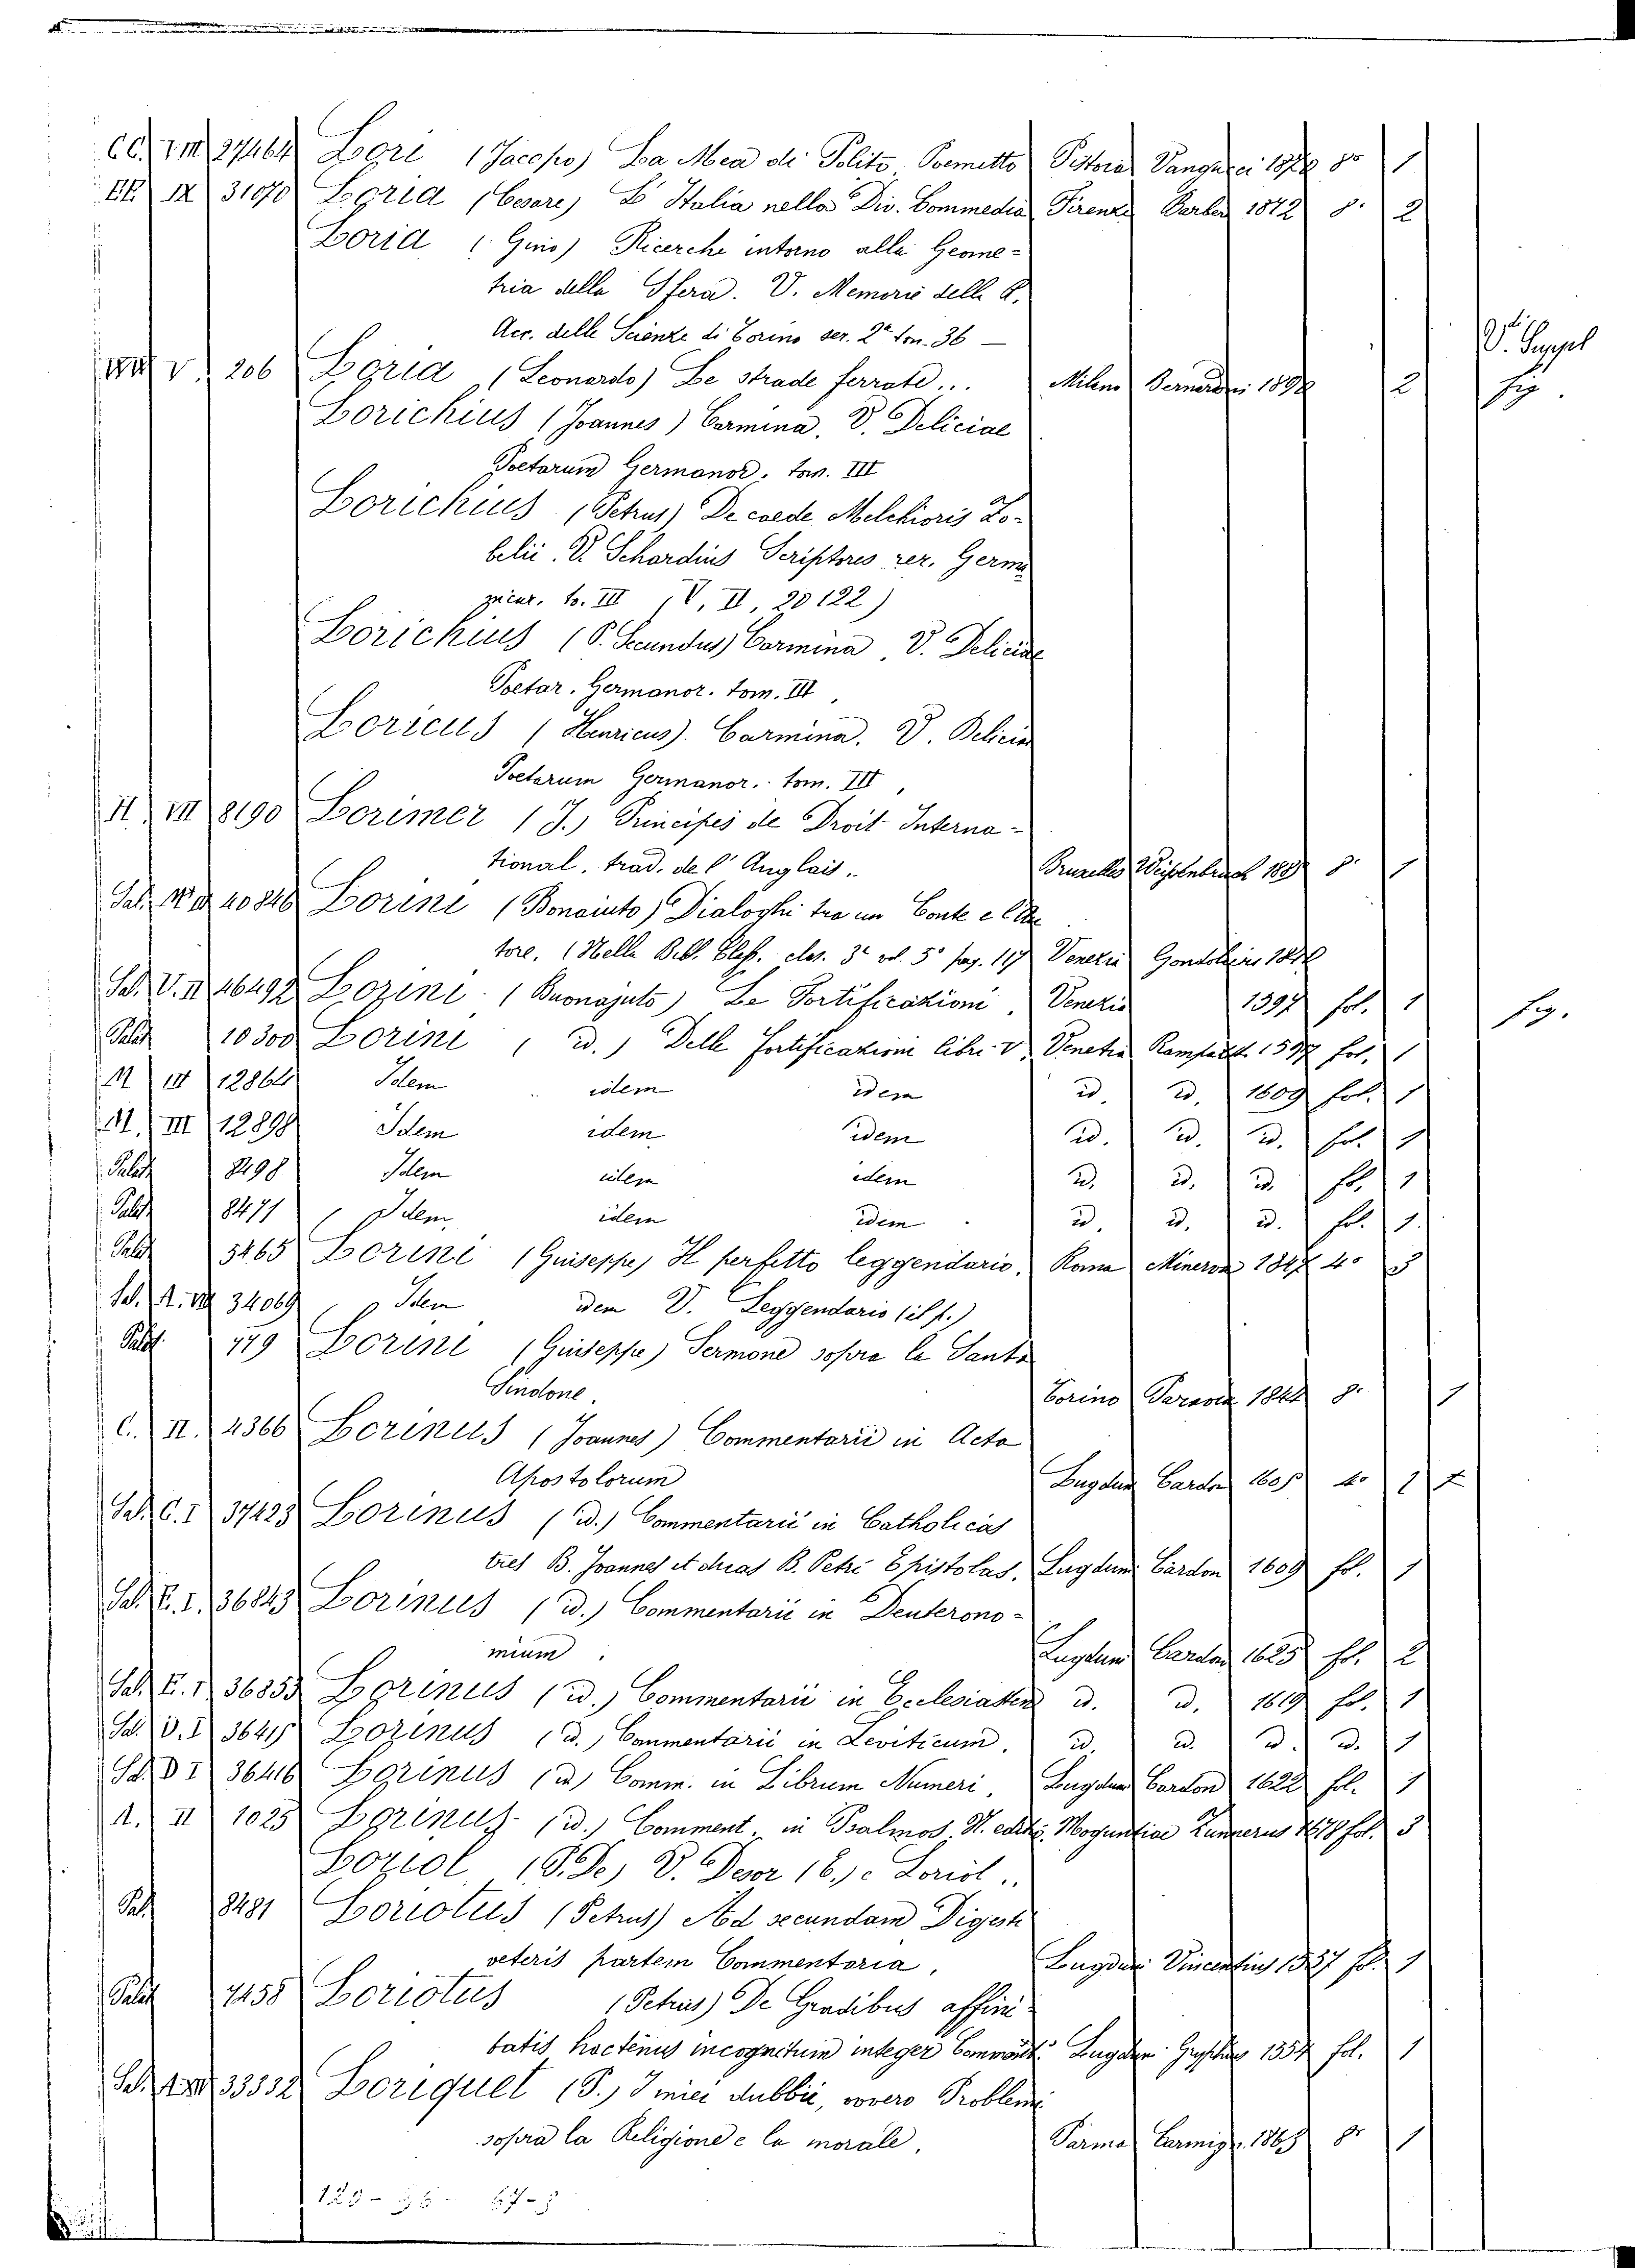 CC. VIII 27464 Lori (Jacopo) La Mea di Polito Poemetto Pistoia Vangucci 8° 1
EE IX 31070 Loria (Cesare) L'Italia nella Div. Commedia Firenze Barbera 1872 8° 2
Loria (Gino) Ricerche intorno alla Geome-
tria della Sfera. V. Memorie delle R.
Acc. delle Scienze di Torino ser. 2ª tom. 36 —
V. Suppl
V 206 Loria (Leonardo) Le strade ferrate... Milano Bernardoni 2 fig.
Lorichius (Joannes) Carmina. V. Deliciae
Poetarum Germanor. tom. III
Lorichius (Petrus) De caede Melchioris Zo-
belii. V. Schardius Scriptores rer. Germa
nicar. to. III (V, II, 20122)
Lorichius (P. Secundus) Carmina, V. Deliciae
Poetar. Germanor. tom. III,
Loricus (Henricus). Carmina. V. Deliciae
Poetarum Germanor. tom. III,
II. VII 8190 Lorimer (J.) Principes de Droit Interna-
tional. trad. de l'Anglais. Bruxelles 8° 1
Sal. 40846 Lorini (Bonaiuto) Dialoghi tra un Conte e l'Au
tore. (Nella Bibl. Class. clas. 3ª vol. 5° pag. 117 Venezia Gondoliere
Sal. V. II 46492 Lorini (Buonajuto) Le Fortificationi, Venezia 1597 fol. 1 fig.
Palat 10300 Lorini (id.) Delle fortificazioni libri V, Venetia Rampazett. 1597 fol. 1
M III 12864 Idem idem idem id. id. 1609 fol. 1
M. III 12898 Idem idem idem id. id. id. fol. 1
Palat 8498 Idem idem idem id. id. id. fol. 1
Palat 8471 Idem idem idem id. id. id. fol. 1
Palat 5465 Lorini (Guiseppe) Il perfetto leggendario, Roma Minerva 1847 4° 3
Sal. A. VII 34069 Idem idem V. Leggendario (il p.)
Palat 779 Lorini (Guiseppe) Sermone sopra la Santa
Sindone. Torino Paravia 1844 8° 1
C. II. 4366 Lorinus (Joannes) Commentarii in Acta
Apostolorum Lugduni Cardon 1605 4° 1
Sal. C. I 37423 Lorinus (id.) Commentarii in Catholicas
tres B. Joannes et duas B. Petri Epistolas, Lugduni Cardon 1609 fol. 1
Sal. E. I. 36843 Lorinus (id.) Commentarii in Deuterono-
mium. Lugduni Cardon 1625 fol. 2
Sal. E. I 36853 Lorinus (id.) Commentarii in Ecclesiasten id. id. 1619 fol. 1
Sal. D. I 36415 Lorinus (id.) Commentarii in Leviticum. id. id. id. id. 1
Sal. D I 36416 Lorinus (id) Comm. in Librum Numeri, Lugduni Cardon 1622 fol. 1
A. II 1025 Lorinus (id.) Comment. in Psalmos. N. editio. Moguntiae Zunnerus 1678 fol. 3
Loriol (P. De) V. Desor (E.) e Loriol..
Pal. 8481 Loriotus (Petrus) Ad secundam Digesti
veteris partem Commentaria, Lugduni Vincentius 1557 fol. 1
Palat 7458 Loriotus (Petrus) De Gradibus affini
tatis hactenus incognitum integer Comment. Lugdun. Gryphius 1554 fol. 1
Sal. 33332 Loriquet (P.) I miei dubbii, ovvero Problemi
sopra la Religione e la morale, Parma Carmign. 1863 8° 1